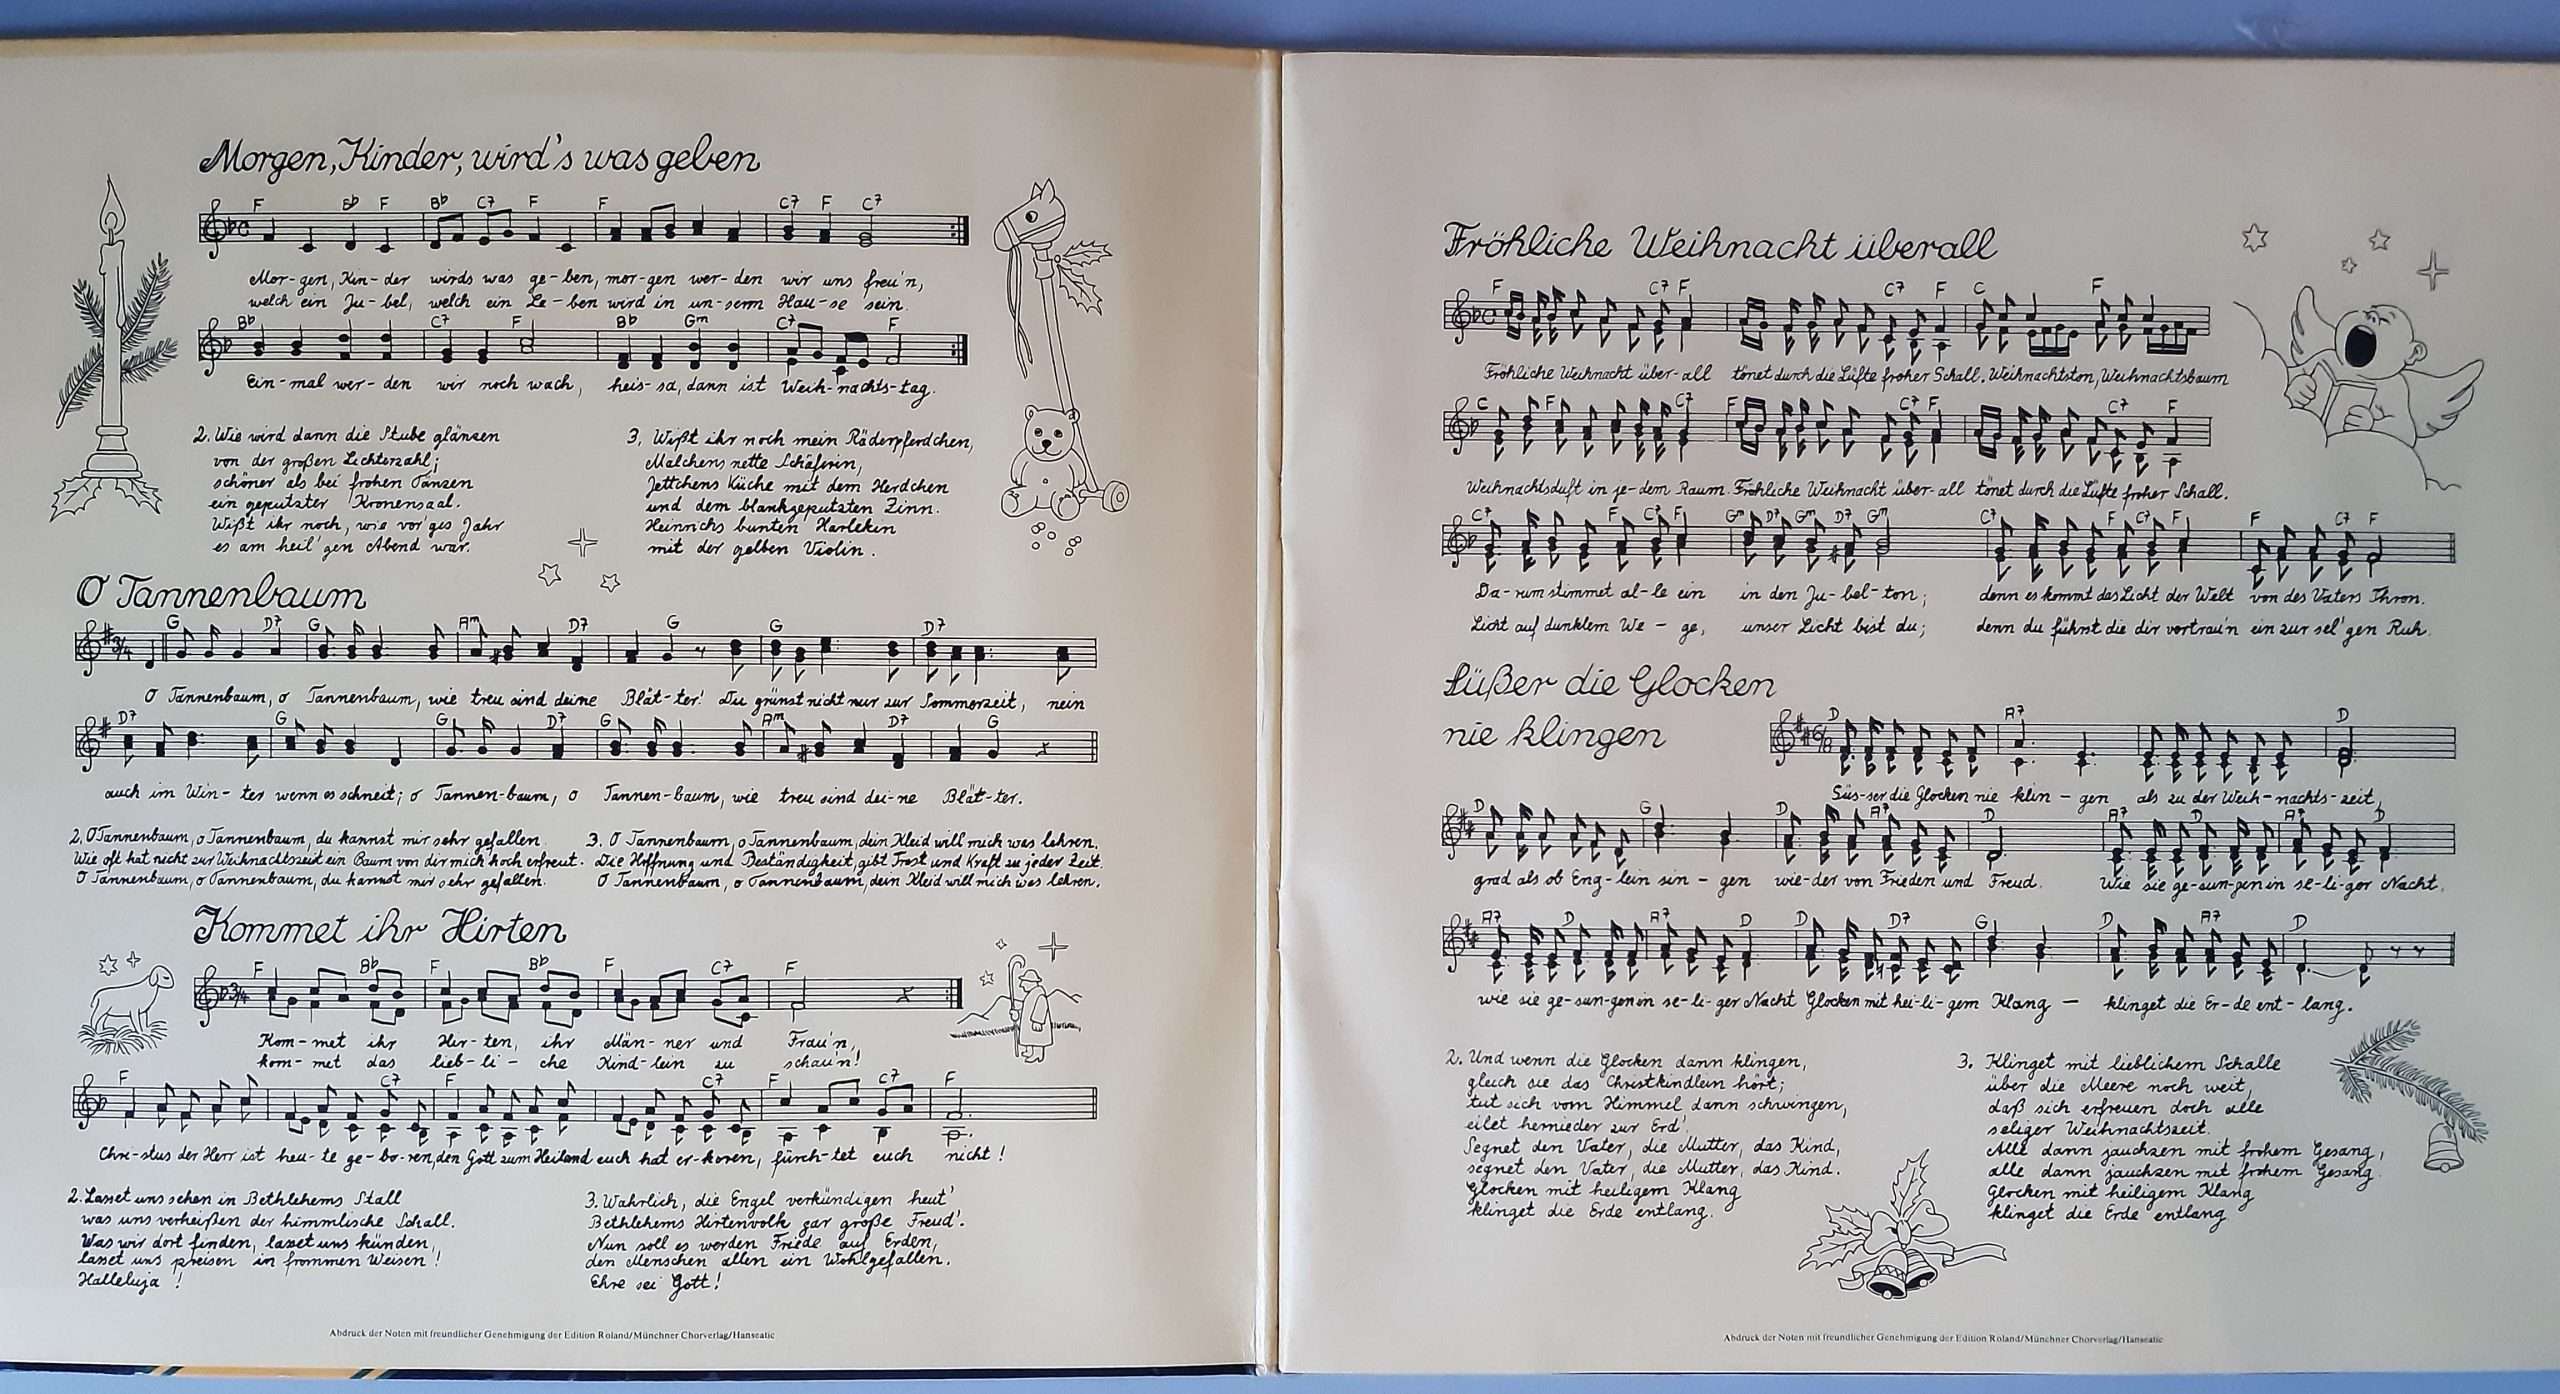 Morgen, Kinder, wird's was geben
F Bb F Bb C7 F F C7 F C7
Mor-gen, Kin-der wirds was ge-ben, mor-gen wer-den wir uns freu'n,
welch ein Ju-bel, welch ein Le-ben wird in un-serm Hau-se sein.
Bb C7 F Bb Gm C7 F
Ein-mal wer-den wir noch wach, heis-sa, dann ist Weih-nachts-tag.
2. Wie wird dann die Stube glänzen
von der großen Lichterzahl;
schöner als bei frohen Tänzen
ein geputzter Kronensaal.
Wißt ihr noch, wie vor'ges Jahr
es am heil'gen Abend war.
3. Wißt ihr noch mein Räderpferdchen,
Malchens nette Schäferin,
Jettchens Küche mit dem Herdchen
und dem blankgeputzten Zinn.
Heinrichs bunten Harlekin
mit der gelben Violin.
O Tannenbaum
3/4 G D7 G Am D7 G G D7
O Tannenbaum, o Tannenbaum, wie treu sind deine Blät-ter! Du grünst nicht nur zur Sommerzeit, nein
D7 G G D7 G Am D7 G
auch im Win-ter wenn es schneit; o Tannen-baum, o Tannen-baum, wie treu sind dei-ne Blät-ter.
2. O Tannenbaum, o Tannenbaum, du kannst mir sehr gefallen.
Wie oft hat nicht zur Weihnachtszeit ein Baum von dir mich hoch erfreut.
O Tannenbaum, o Tannenbaum, du kannst mir sehr gefallen.
3. O Tannenbaum, o Tannenbaum, dein Kleid will mich was lehren.
Die Hoffnung und Beständigkeit, gibt Trost und Kraft zu jeder Zeit.
O Tannenbaum, o Tannenbaum, dein Kleid will mich was lehren.
Kommet ihr Hirten
3/4 F Bb F Bb F C7 F
Kom-met ihr Hir-ten, ihr Män-ner und Frau'n,
kom-met das lieb-li-che Kind-lein zu schau'n!
F C7 F C7 F C7 F
Chri-stus der Herr ist heu-te ge-bo-ren, den Gott zum Heiland euch hat er-koren, fürch-tet euch nicht!
2. Lasset uns sehen in Bethlehems Stall
was uns verheißen der himmlische Schall.
Was wir dort finden, lasset uns künden,
lasset uns preisen in frommen Weisen!
Halleluja!
3. Wahrlich, die Engel verkündigen heut'
Bethlehems Hirtenvolk gar große Freud'.
Nun soll es werden Friede auf Erden,
den Menschen allen ein Wohlgefallen.
Ehre sei Gott!
Abdruck der Noten mit freundlicher Genehmigung der Edition Roland/Münchner Chorverlag/Hanseatic
Fröhliche Weihnacht überall
F C7 F C7 F C F
Fröhliche Weihnacht über-all tönet durch die Lüfte froher Schall. Weihnachtston, Weihnachtsbaum
C F C7 F C7 F C7 F
Weihnachtsduft in je-dem Raum. Fröhliche Weihnacht über-all tönet durch die Lüfte froher Schall.
C7 F C7 F Gm D7 Gm D7 Gm C7 F C7 F F C7 F
Da-rum stimmet al-le ein in den Ju-bel-ton; denn es kommt das Licht der Welt von des Vaters Thron.
Licht auf dunklem We-ge, unser Licht bist du; denn du führst die dir vertrau'n ein zur sel'gen Ruh.
Süßer die Glocken
nie klingen
6/8 D A7 D
Süs-ser die Glocken nie klin-gen als zu der Weih-nachts-zeit,
D G D A7 D A7 D A7 D
grad als ob Eng-lein sin-gen wie-der von Frieden und Freud. Wie sie ge-sun-gen in se-li-ger Nacht.
A7 D A7 D D D7 G D A7 D
wie sie ge-sun-gen in se-li-ger Nacht Glocken mit hei-li-gem Klang — klinget die Er-de ent-lang.
2. Und wenn die Glocken dann klingen,
gleich sie das Christkindlein hört;
tut sich vom Himmel dann schwingen,
eilet hernieder zur Erd'.
Segnet den Vater, die Mutter, das Kind,
segnet den Vater, die Mutter, das Kind.
Glocken mit heiligem Klang
klinget die Erde entlang.
3. Klinget mit lieblichem Schalle
über die Meere noch weit,
daß sich erfreuen doch alle
seliger Weihnachtszeit.
Alle dann jauchzen mit frohem Gesang,
alle dann jauchzen mit frohem Gesang.
Glocken mit heiligem Klang
klinget die Erde entlang.
Abdruck der Noten mit freundlicher Genehmigung der Edition Roland/Münchner Chorverlag/Hanseatic